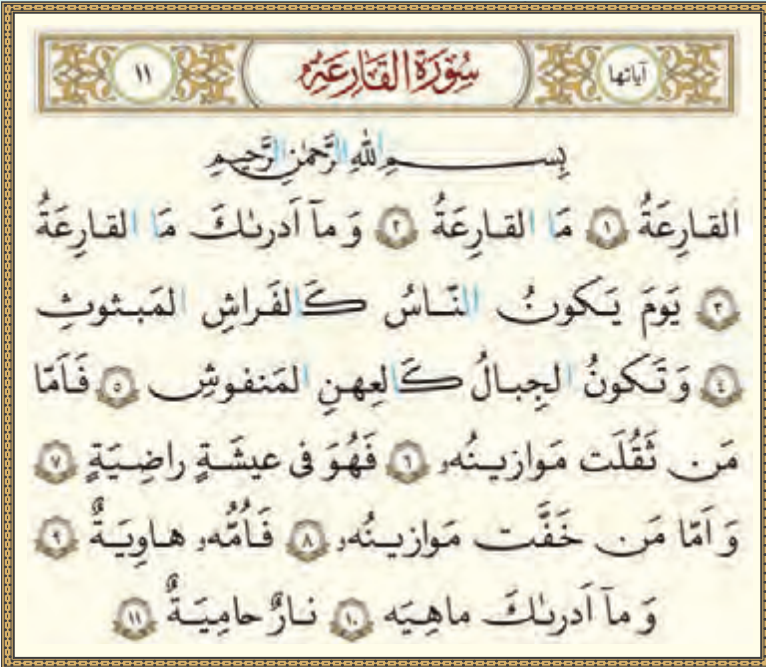 آیاتها سُورَةُ القَارِعَة ١١
بِسـمِ اللّٰهِ الرَّحمٰنِ الرَّحیمِ
اَلقارِعَةُ ١ مَا القارِعَةُ ٢ وَ ماۤ اَدرىٰكَ مَا القارِعَةُ
٣ یَومَ یَكونُ النّاسُ كَالفَراشِ المَبثوثِ
٤ وَ تَكونُ الجِبالُ كَالعِهنِ المَنفوشِ ٥ فَاَمّا
مَن ثَقُلَت مَوازینُهٗ ٦ فَهُوَ فی عیشَةٍ راضِیَةٍ ٧
وَ اَمّا مَن خَفَّت مَوازینُهٗ ٨ فَاُمُّهٗ هاوِیَةٌ ٩
وَ ماۤ اَدرىٰكَ ماهِیَه ١٠ نارٌ حامِیَةٌ ١١